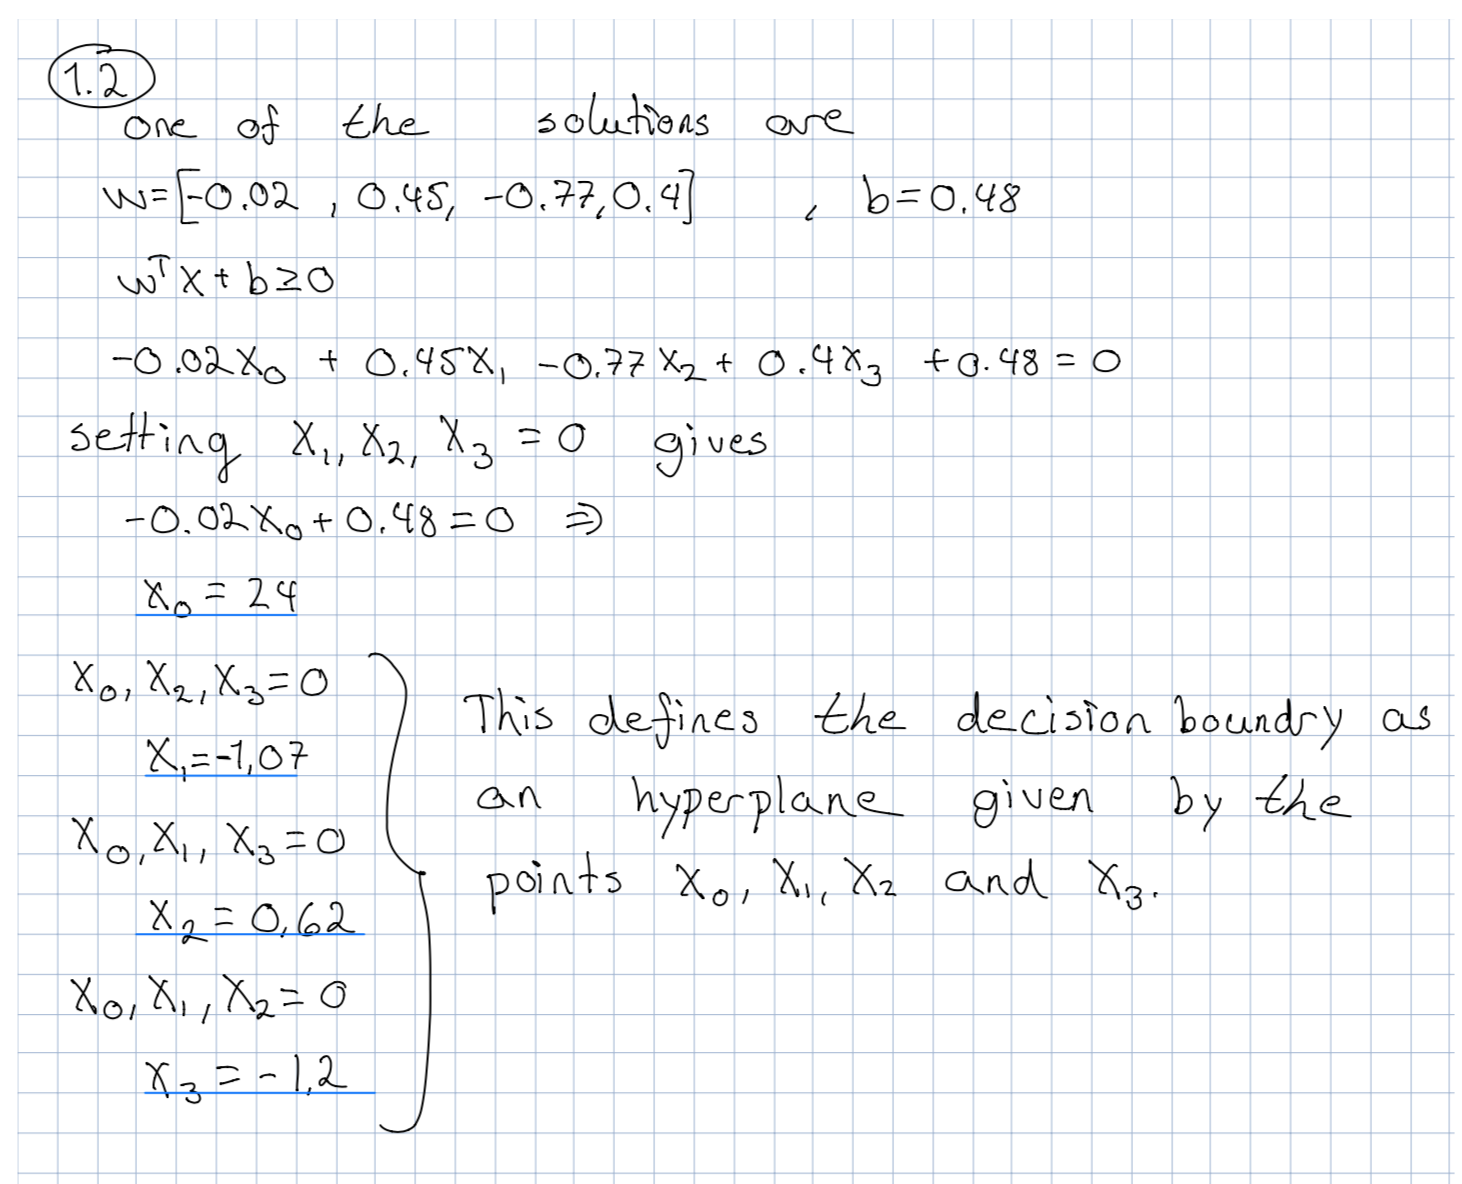 1.2
one of the solutions are
w=[-0.02 , 0.45, -0.77, 0.4] , b=0.48
wᵀx + b ≥ 0
-0.02x₀ + 0.45x₁ -0.77x₂ + 0.4x₃ +0.48 = 0
setting x₁, x₂, x₃ = 0 gives
-0.02x₀ + 0.48 = 0 ⇒
x₀ = 24
x₀, x₂, x₃ = 0
x₁ = -1,07
x₀, x₁, x₃ = 0
x₂ = 0,62
x₀, x₁, x₂ = 0
x₃ = -1,2
This defines the decision boundry as
an hyperplane given by the
points x₀, x₁, x₂ and x₃.